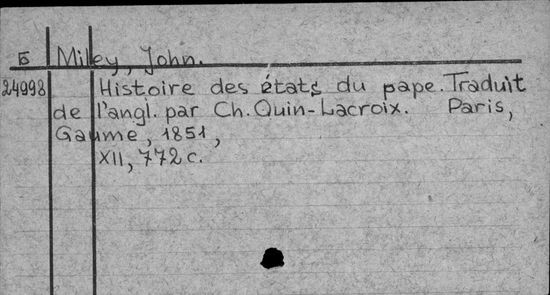 Б Miley, John.
24998 Histoire des états du pape. Traduit
de l'angl. par Ch. Quin-Lacroix. Paris,
Gaume, 1851,
XII, 772 c.